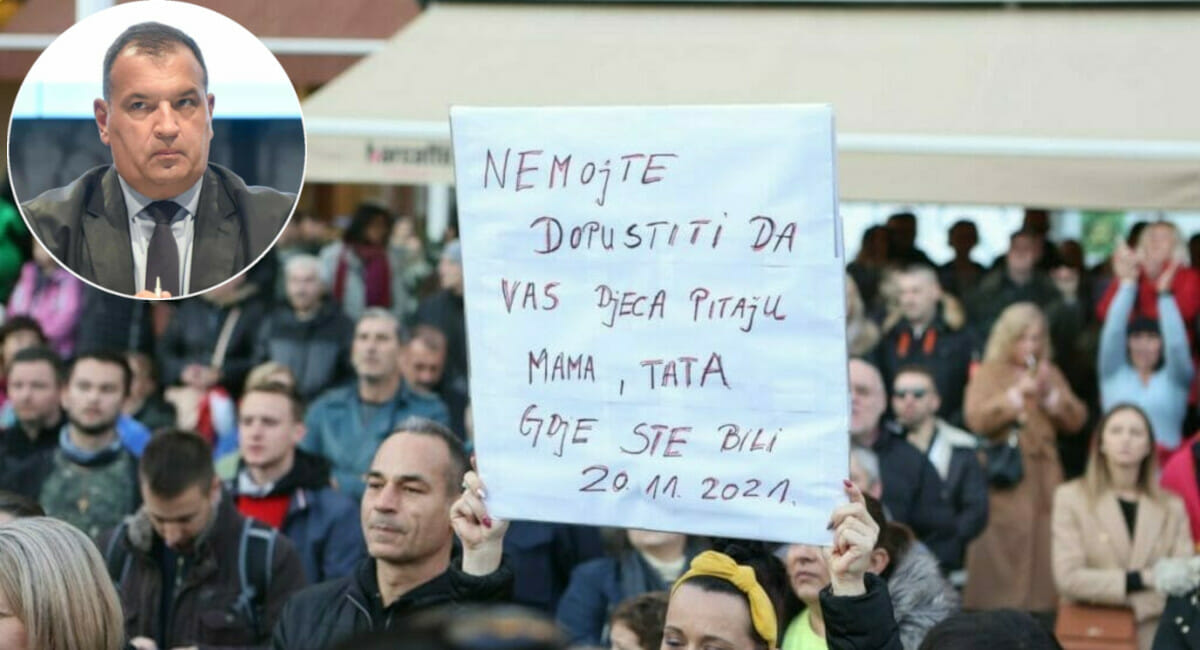 NEMOJTE
DOPUSTITI DA
VAS DJECA PITAJU
MAMA, TATA
GDJE STE BILI
20. 11. 2021.